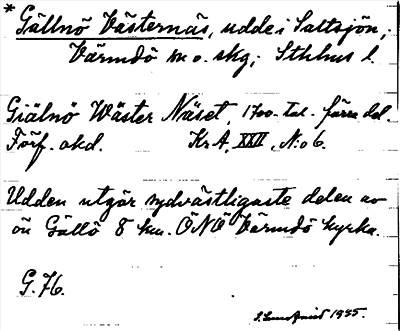 * Gällnö Västernäs, udde i Saltsjön,
Värmdö sn o. skg; Sthlms l.
Giälnö Wäster Näset, 1700-tal. förra del.
Förf. okd. Kr A, XXII, N:o 6.
Udden utgör sydvästligaste delen av
ön Gällö 8 km. ÖNÖ Värmdö kyrka.
G. 76.
1935.